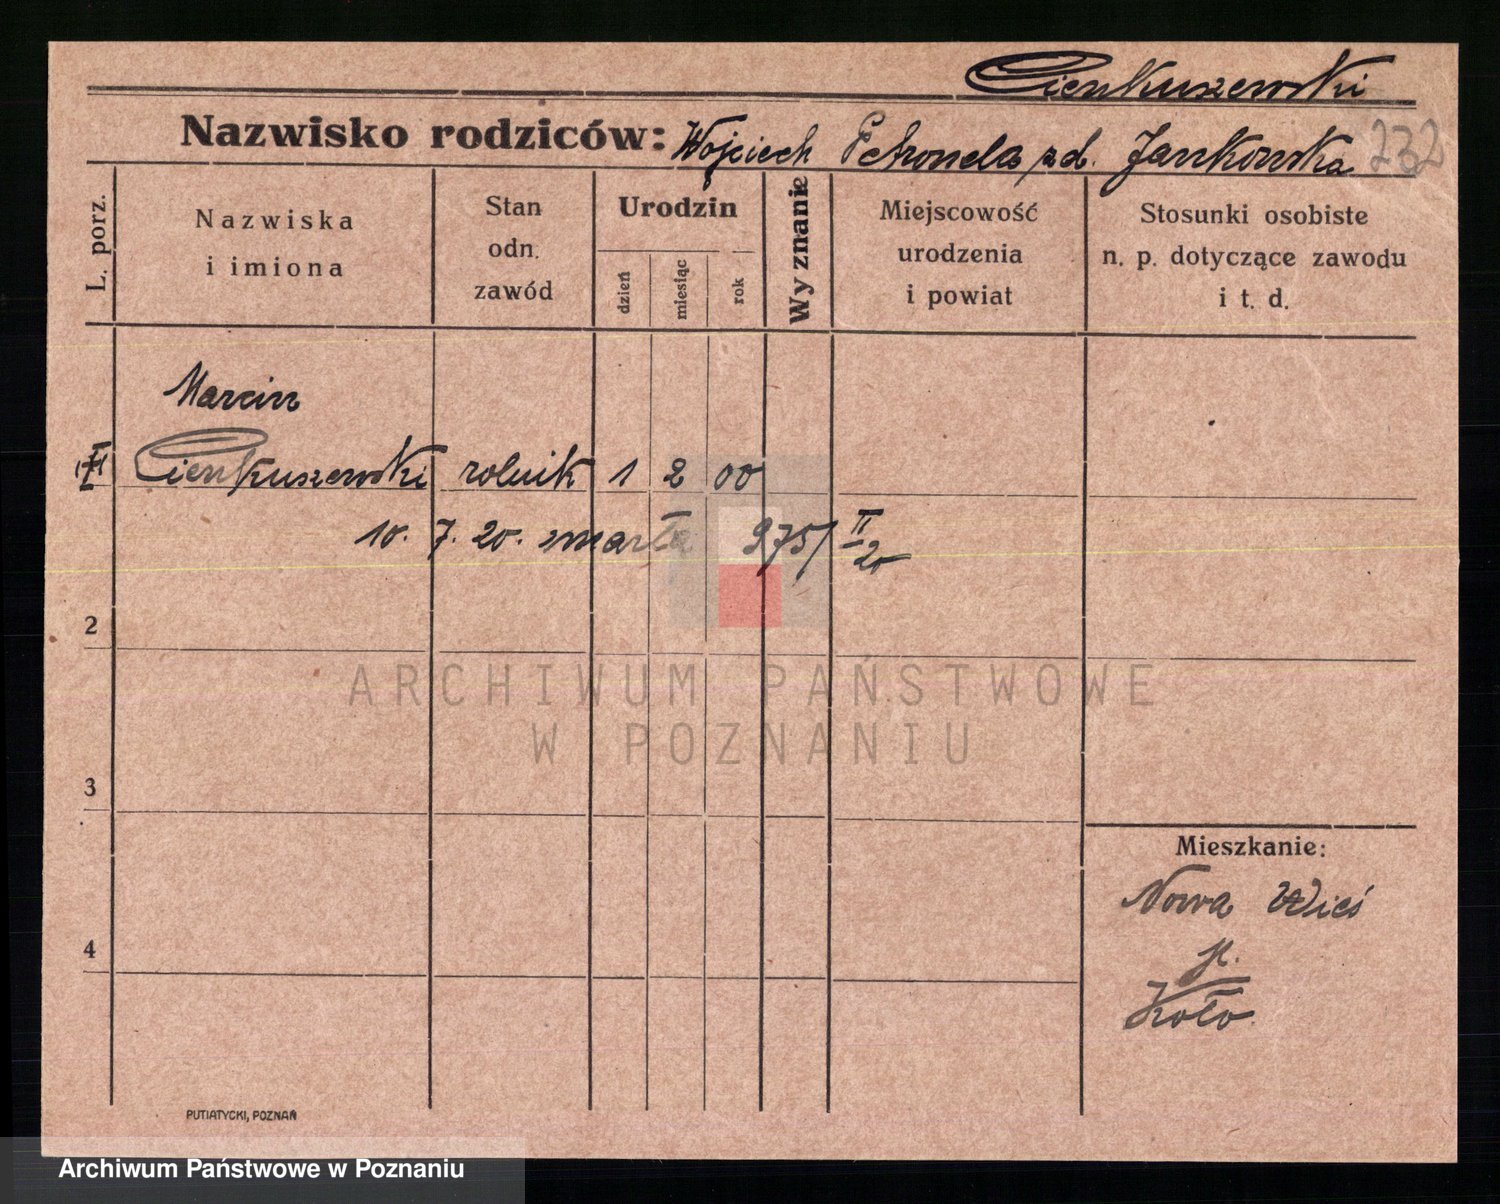 Cienkuszewski
Nazwisko rodziców: Wojciech Petronela zd. Jankowska 232
L. porz.
Nazwiska
i imiona
Stan
odn.
zawód
Urodzin
dzień
miesiąc
rok
Wyznanie
Miejscowość
urodzenia
i powiat
Stosunki osobiste
n. p. dotyczące zawodu
i t. d.
Marcin
Cienkuszewski rolnik 1 2 00
10. 7. 20. zmarła 975/ II/20
2
3
4
Mieszkanie:
Nowa Wieś
Koło
ARCHIWUM PAŃSTWOWE
W POZNANIU
PUTIATYCKI, POZNAŃ
Archiwum Państwowe w Poznaniu